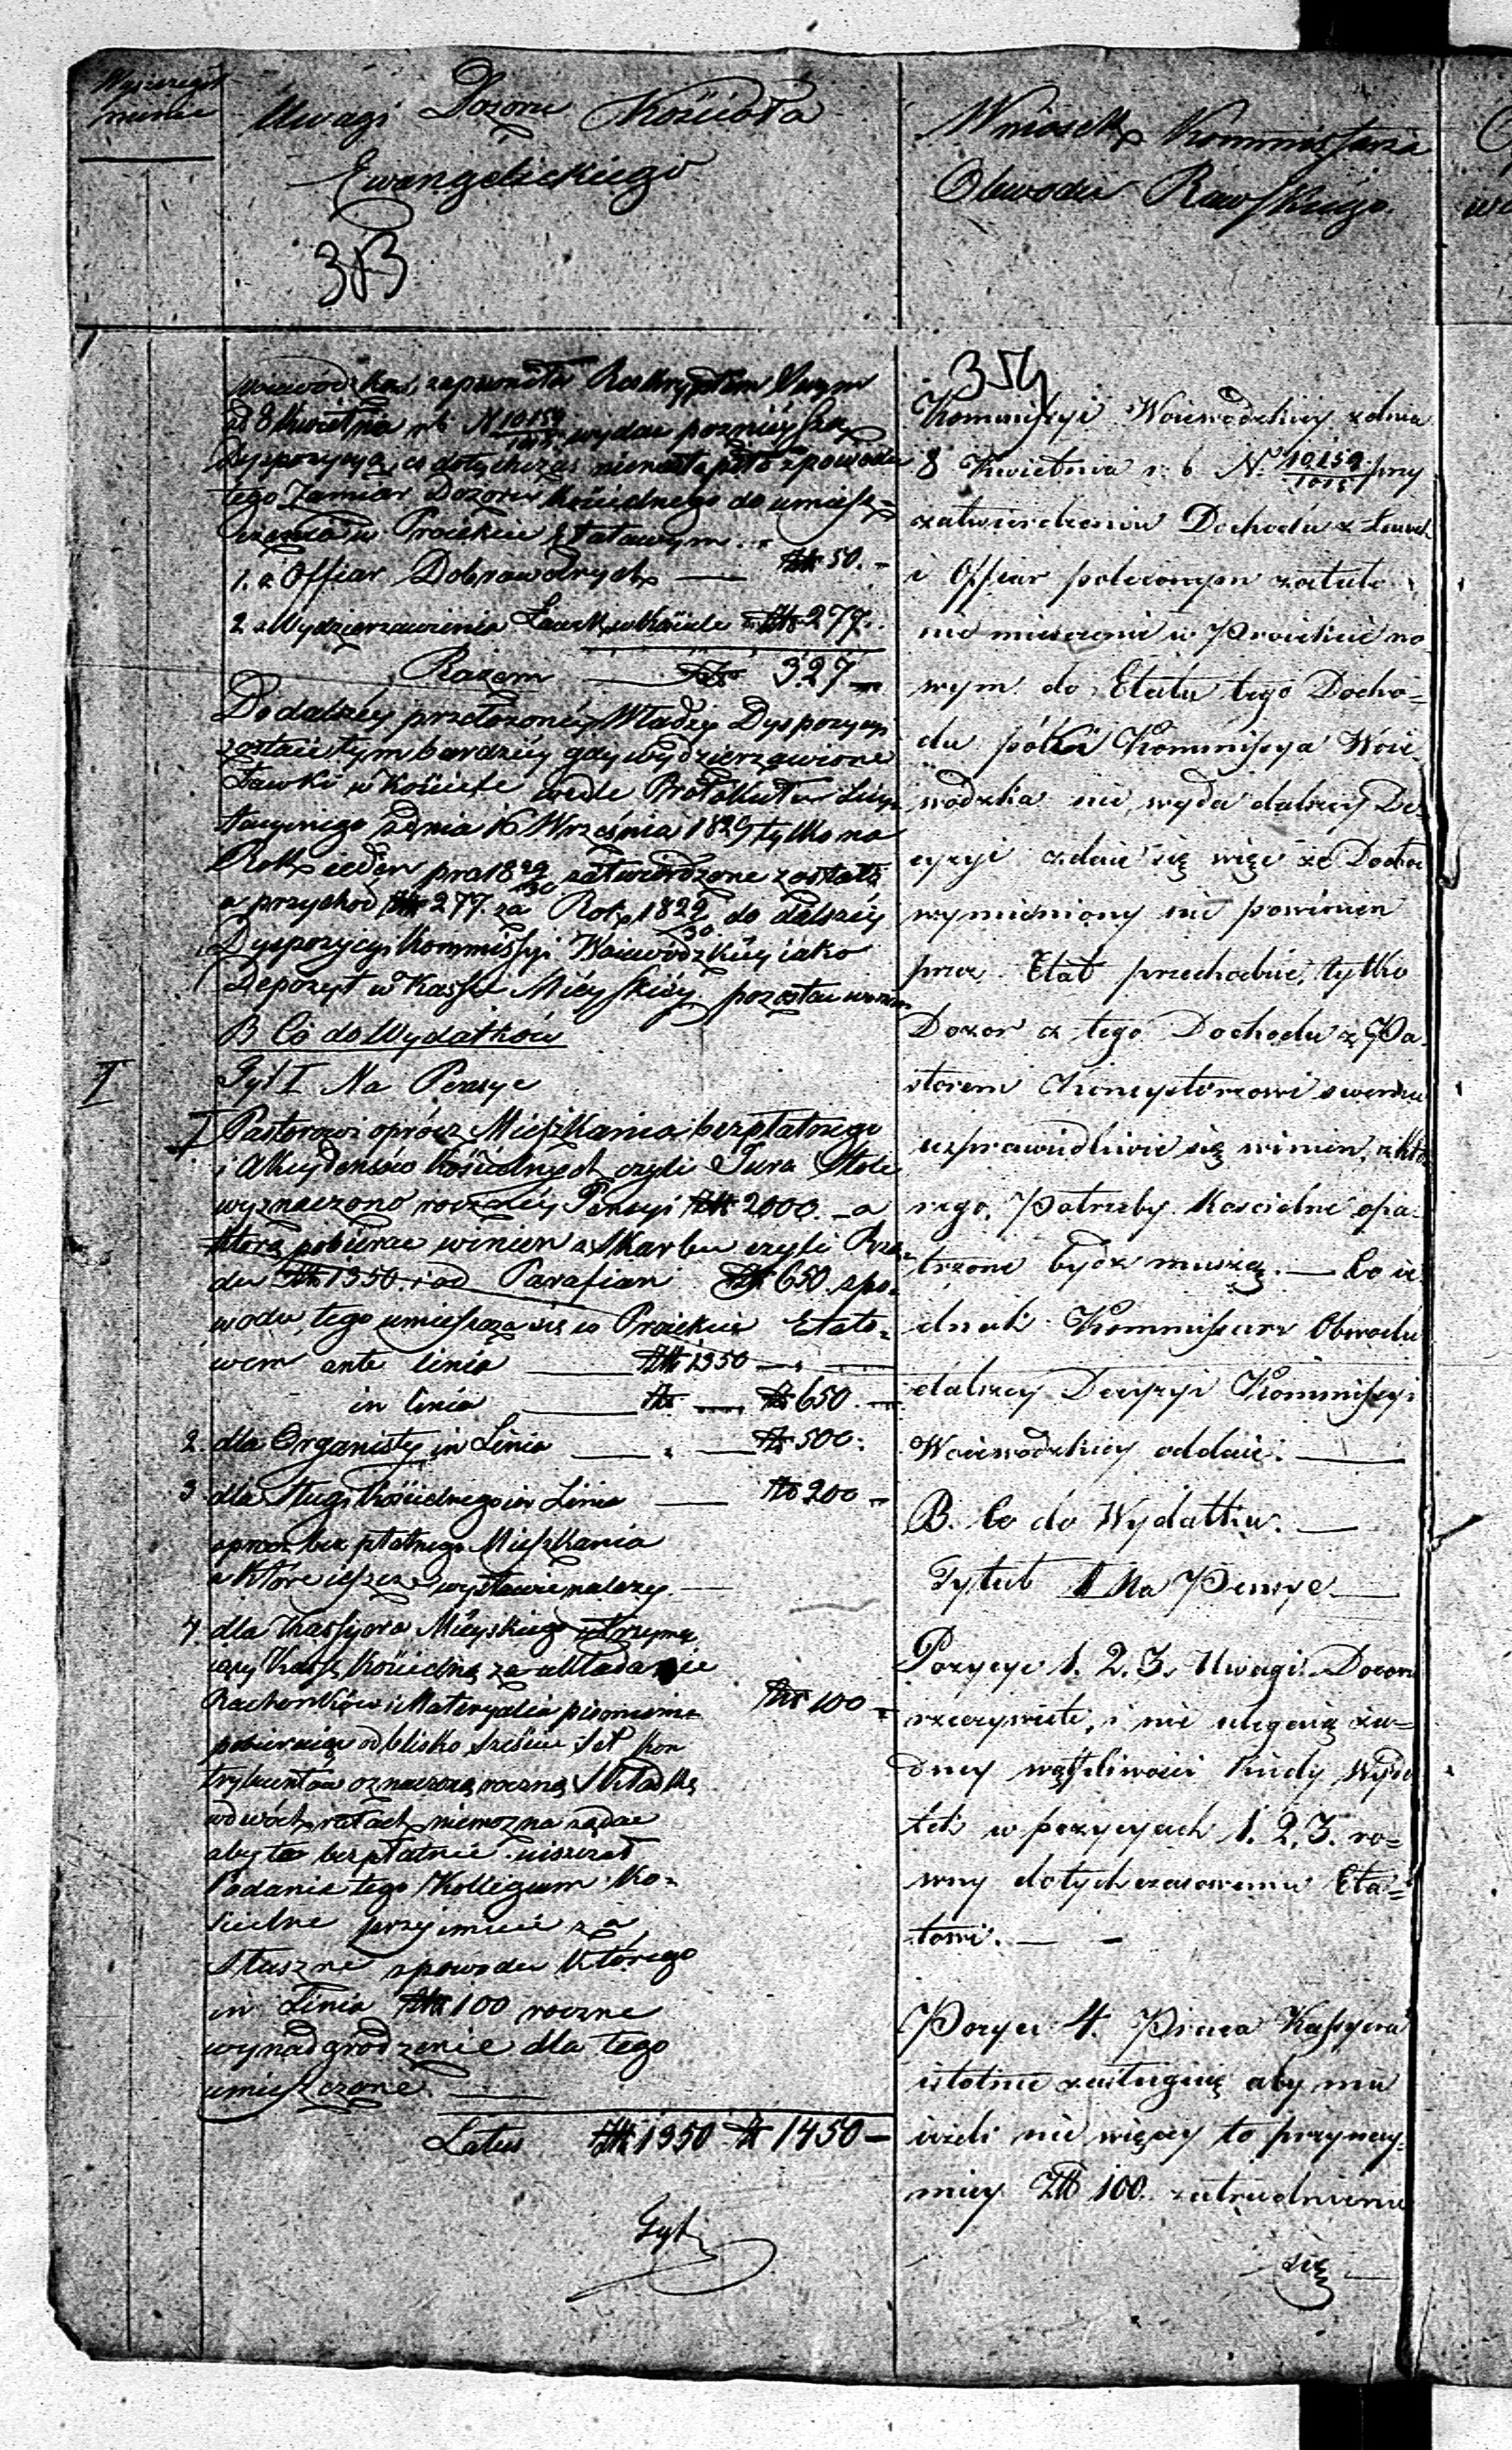 Wyszczegól
nienie
Uwagi Dozoru Kościoła
Ewangelickiego
383
Wniosek Kommissarza
Obwodu Rawskiego
Wojewódzka, zapewniła Reskryptem Swym
od 8 Kwietnia r b N 10159/1015 wydać poznieyszą
Dyspozycyą, co dotychczas nienastąpiło z powodu
tego Zamiar Dozoru Kościelnego do umiesz=
czenia w Proiekcie Etatowym
1. z Offiar Dobrowolnych — Złt 50. -
2 z Wydzierzawienia Ławek w Kościele Złt 277.
Razem — Złt 327 —
Do dalszéy przełożonéy Władzy Dyspozycyi
zostaie tym bardziéy gdy wydzierzawione
Ławki w Kościele wedle Protokułu Licy
tacyinego z dnia 16 Września 1829 tylko na
Rok ieden pro 1829/30 zatwierdzone zostało
a przychod Złt 277. za Rok 1829/30 do dalszéy
Dyspozycyi Kommissyi Woiewódzkiéy iako
Depozyt w Kassie Mieyskiéy pozostawiono
B Co do Wydatków
I
Tyt I Na Pensye
1 Pastorowi oprócz Mieszkania bezpłatnego
i Akcydensów Kościelnych czyli Jura Stole
wyznaczono roczney Pensyi Złt 2000. — a
którą pobierać winien z Skarbu czyli Rzą
du Złt 1350. i od Parafian Złt 650. z po=
wodu tego umieszcza się w Proiekcie Etato=
wem ante linia — Złt 1350 —
in linia — Złt — Złt 650. —
2. dla Organisty in Linia — Złt 500.
3 dla Sługi Kościelnego in Linia — Złt 200 —
oprócz bez płatnego Mieszkania
a które ieszcze wystawić nalezy —
4. dla Kassyera Mieyskiego utrzymu
iący Kassę Kościelną za układanie
Rachonków i Materyalia pisemne Złt 100 —
pobieraiąc od blisko sześciu set kon
trybuentów oznaczoną roczną Składkę
w dwóch ratach niemozna ządać
aby to bezpłatnie uiszczał
Podanie tego Kollegium Ko=
ścielne przyimuie za
Słuszne z powodu którego
in Linia Złt 100 roczne
wynadgrodzenie dla tego
umieszczone. —
Latus Złt 1350 Złt 1450 —
Tyt
354
Kommissyi Woiewódzkiey z dnia
8 Kwietnia r. b N. 10159/1015 przy
zatwierdzeniu Dochodu z Ławek
i Offiar poleconym zostało
nie mieszczenie w Proiekcie no
wym do Etatu tego Docho=
du póki Kommissya Woie
wódzka nie wyda dalszey De=
cyzyi zdaie się więc że Dochod
wymieniony nie powinien
przez Etat przechodzić, tylko
Dozor z tego Dochodu z Pa
storem Konsystorzowi swemu
usprawiedliwić się winien, z któ
rego Potrzeby Kościelne opa=
trzone bydź muszą. — Co ie
dnak Kommissarz Obwodu
dalszey Decyzyi Kommissyi
Woiewodzkiey oddaie. —
B. Co do Wydatku. —
Tytuł I Na Pensye —
Pozycye 1. 2. 3. Uwagi Dozoru
rzeczywiste, i nie ulegaią ża=
dney wątpliwości kiedy Wyda
tek w pozycyach 1. 2. 3. ro=
wny dotychczasowemu Eta=
towi. — —
Pozyci 4. Praca Kassyera
istotnie zasługuie aby mu
ieżeli nie więcey to przynay=
mniey Złt 100. zatrudnienie
się —